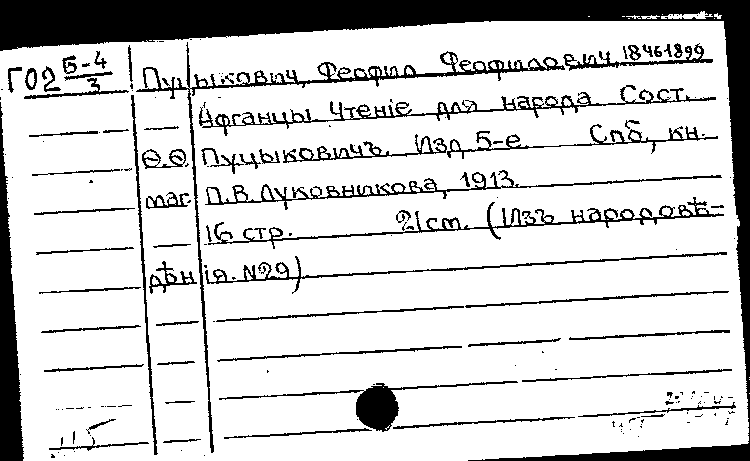 Г02 5-4/3 Пуцыкович, Феофил Феофилович, 1846-1899
Афганцы. Чтеніе для народа. Сост.
Ѳ.Ѳ. Пуцыковичъ. Изд. 5-е. Спб., кн.
маг. П.В. Луковникова, 1913.
16 стр. 21 cm. (Изъ народовѣ-
дѣнія. №29)
115